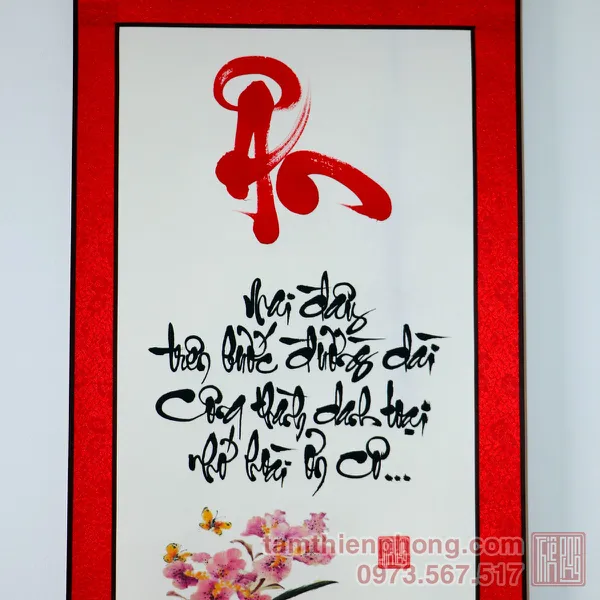 Ân
Mai đây
trên bước đường dài
Công thành danh toại
nhớ hoài ơn cô...
tamthienphong.com
0973.567.517